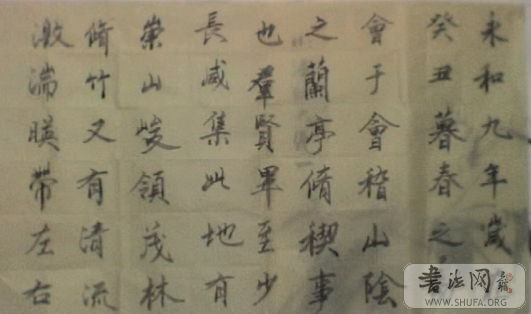 永和九年歲
癸丑暮春之
會于會稽山陰
之蘭亭脩禊事
也羣賢畢至少
長咸集此地有
崇山峻領茂林
脩竹又有清流
激湍暎帶左右
书法网
WWW.SHUFA.ORG